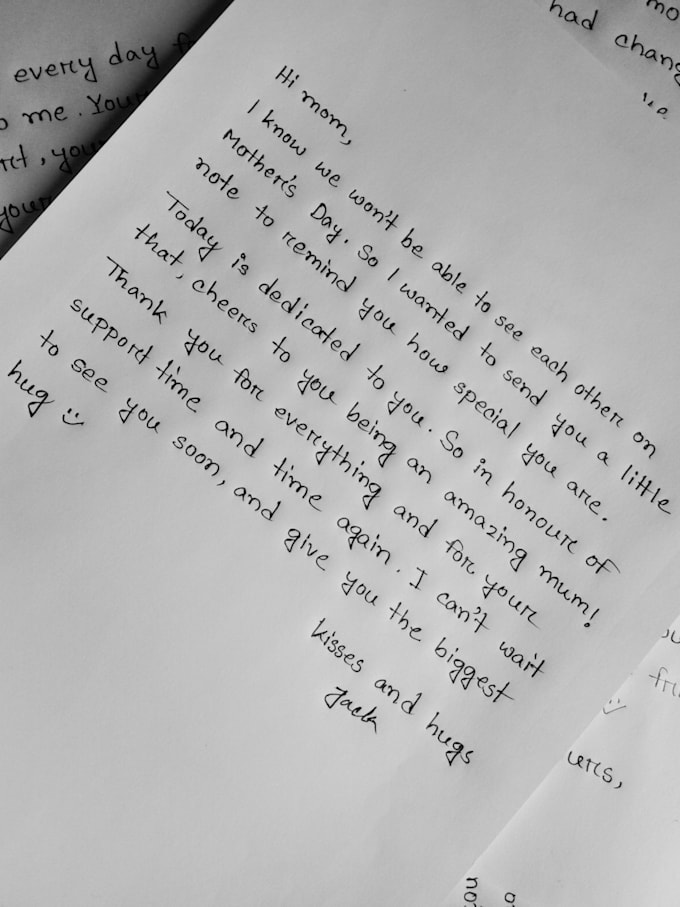 every day
me. Your
you
your
Hi mom,
I know we won't be able to see each other on
Mother's Day. So I wanted to send you a little
note to remind you how special you are.
Today is dedicated to you. So in honour of
that, cheers to you being an amazing mum!
Thank you for everything and for your
support time and time again. I can't wait
to see you soon, and give you the biggest
hug :)
kisses and hugs
Jack
had